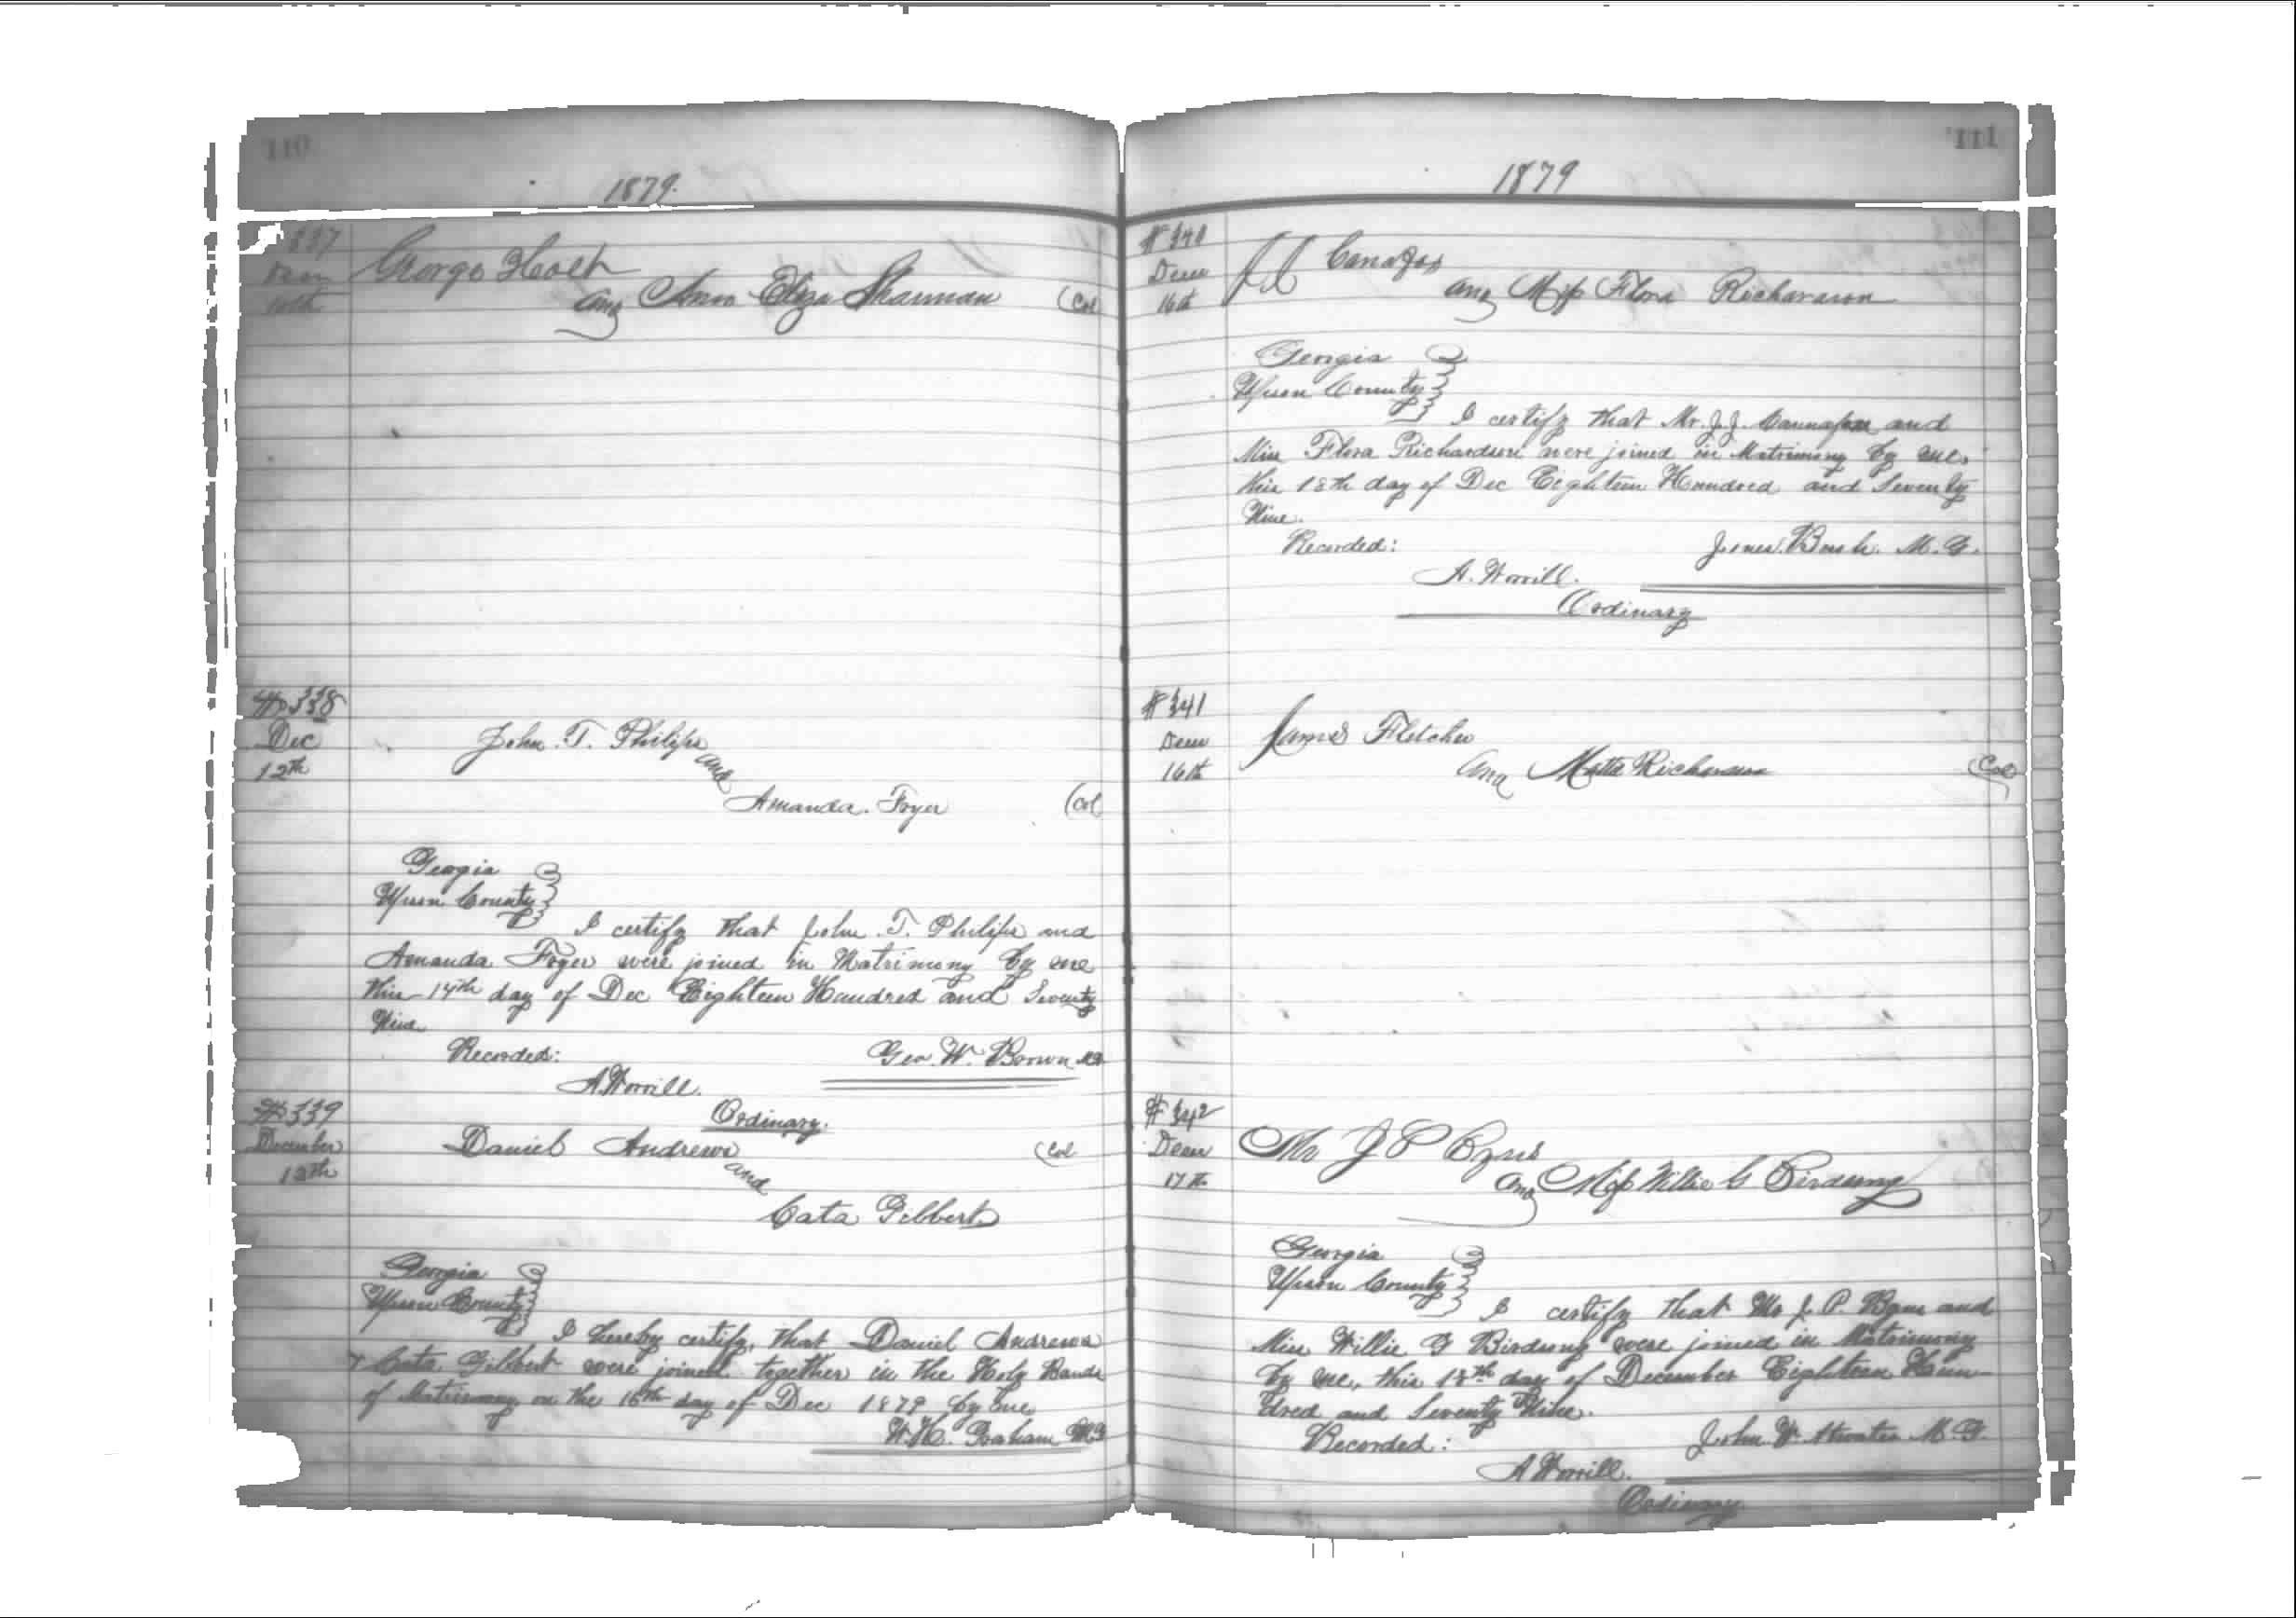 110
1879.
337
Decm
10th
George Holt
and Ann Eliza Sharman (Col
# 338
Dec
12th
John. T. Philips
and
Amanda. Foyer (Col
Georgia
Upson County
I certify that John. T. Philips and
Amanda Foyer were joined in Matrimony by me
this 14th day of Dec Eighteen Hundred and Seventy
Nine
Recorded: Geo. W. Brown MG
A. Worrill.
Ordinary.
# 339
December
12th
Daniel Andrews (Col
and
Cata Gibbert
Georgia
Upson County
I hereby certify, that Daniel Andrews
& Cata Gibbert were joined together in the Holy Bands
of Matrimony on the 16th day of Dec 1879 by me
W. H. Graham MG
111
1879
# 340
Decm
16th
J J Canafax
and Miss Flora Richardson
Georgia
Upson County
I certify that Mr. J. J. Cannafax and
Miss Flora Richardson were joined in Matrimony by me,
this 18th day of Dec Eighteen Hundred and Seventy
Nine.
Recorded: Bush. M. G.
A. Worrill.
Ordinary
# 341
Decm
16th
James Fletcher
and Matta Richardson (Col
# 342
Decm
17th
Mr J P Byns
and Miss Willie G Birdsong
Georgia
Upson County
I certify that Mr J. P. Byns and
Miss Willie G Birdsong were joined in Matrimony
by me, this 18th day of December Eighteen Hun-
dred and Seventy Nine.
Recorded: John W. Atwater M. G.
A Worrill.
Ordinary